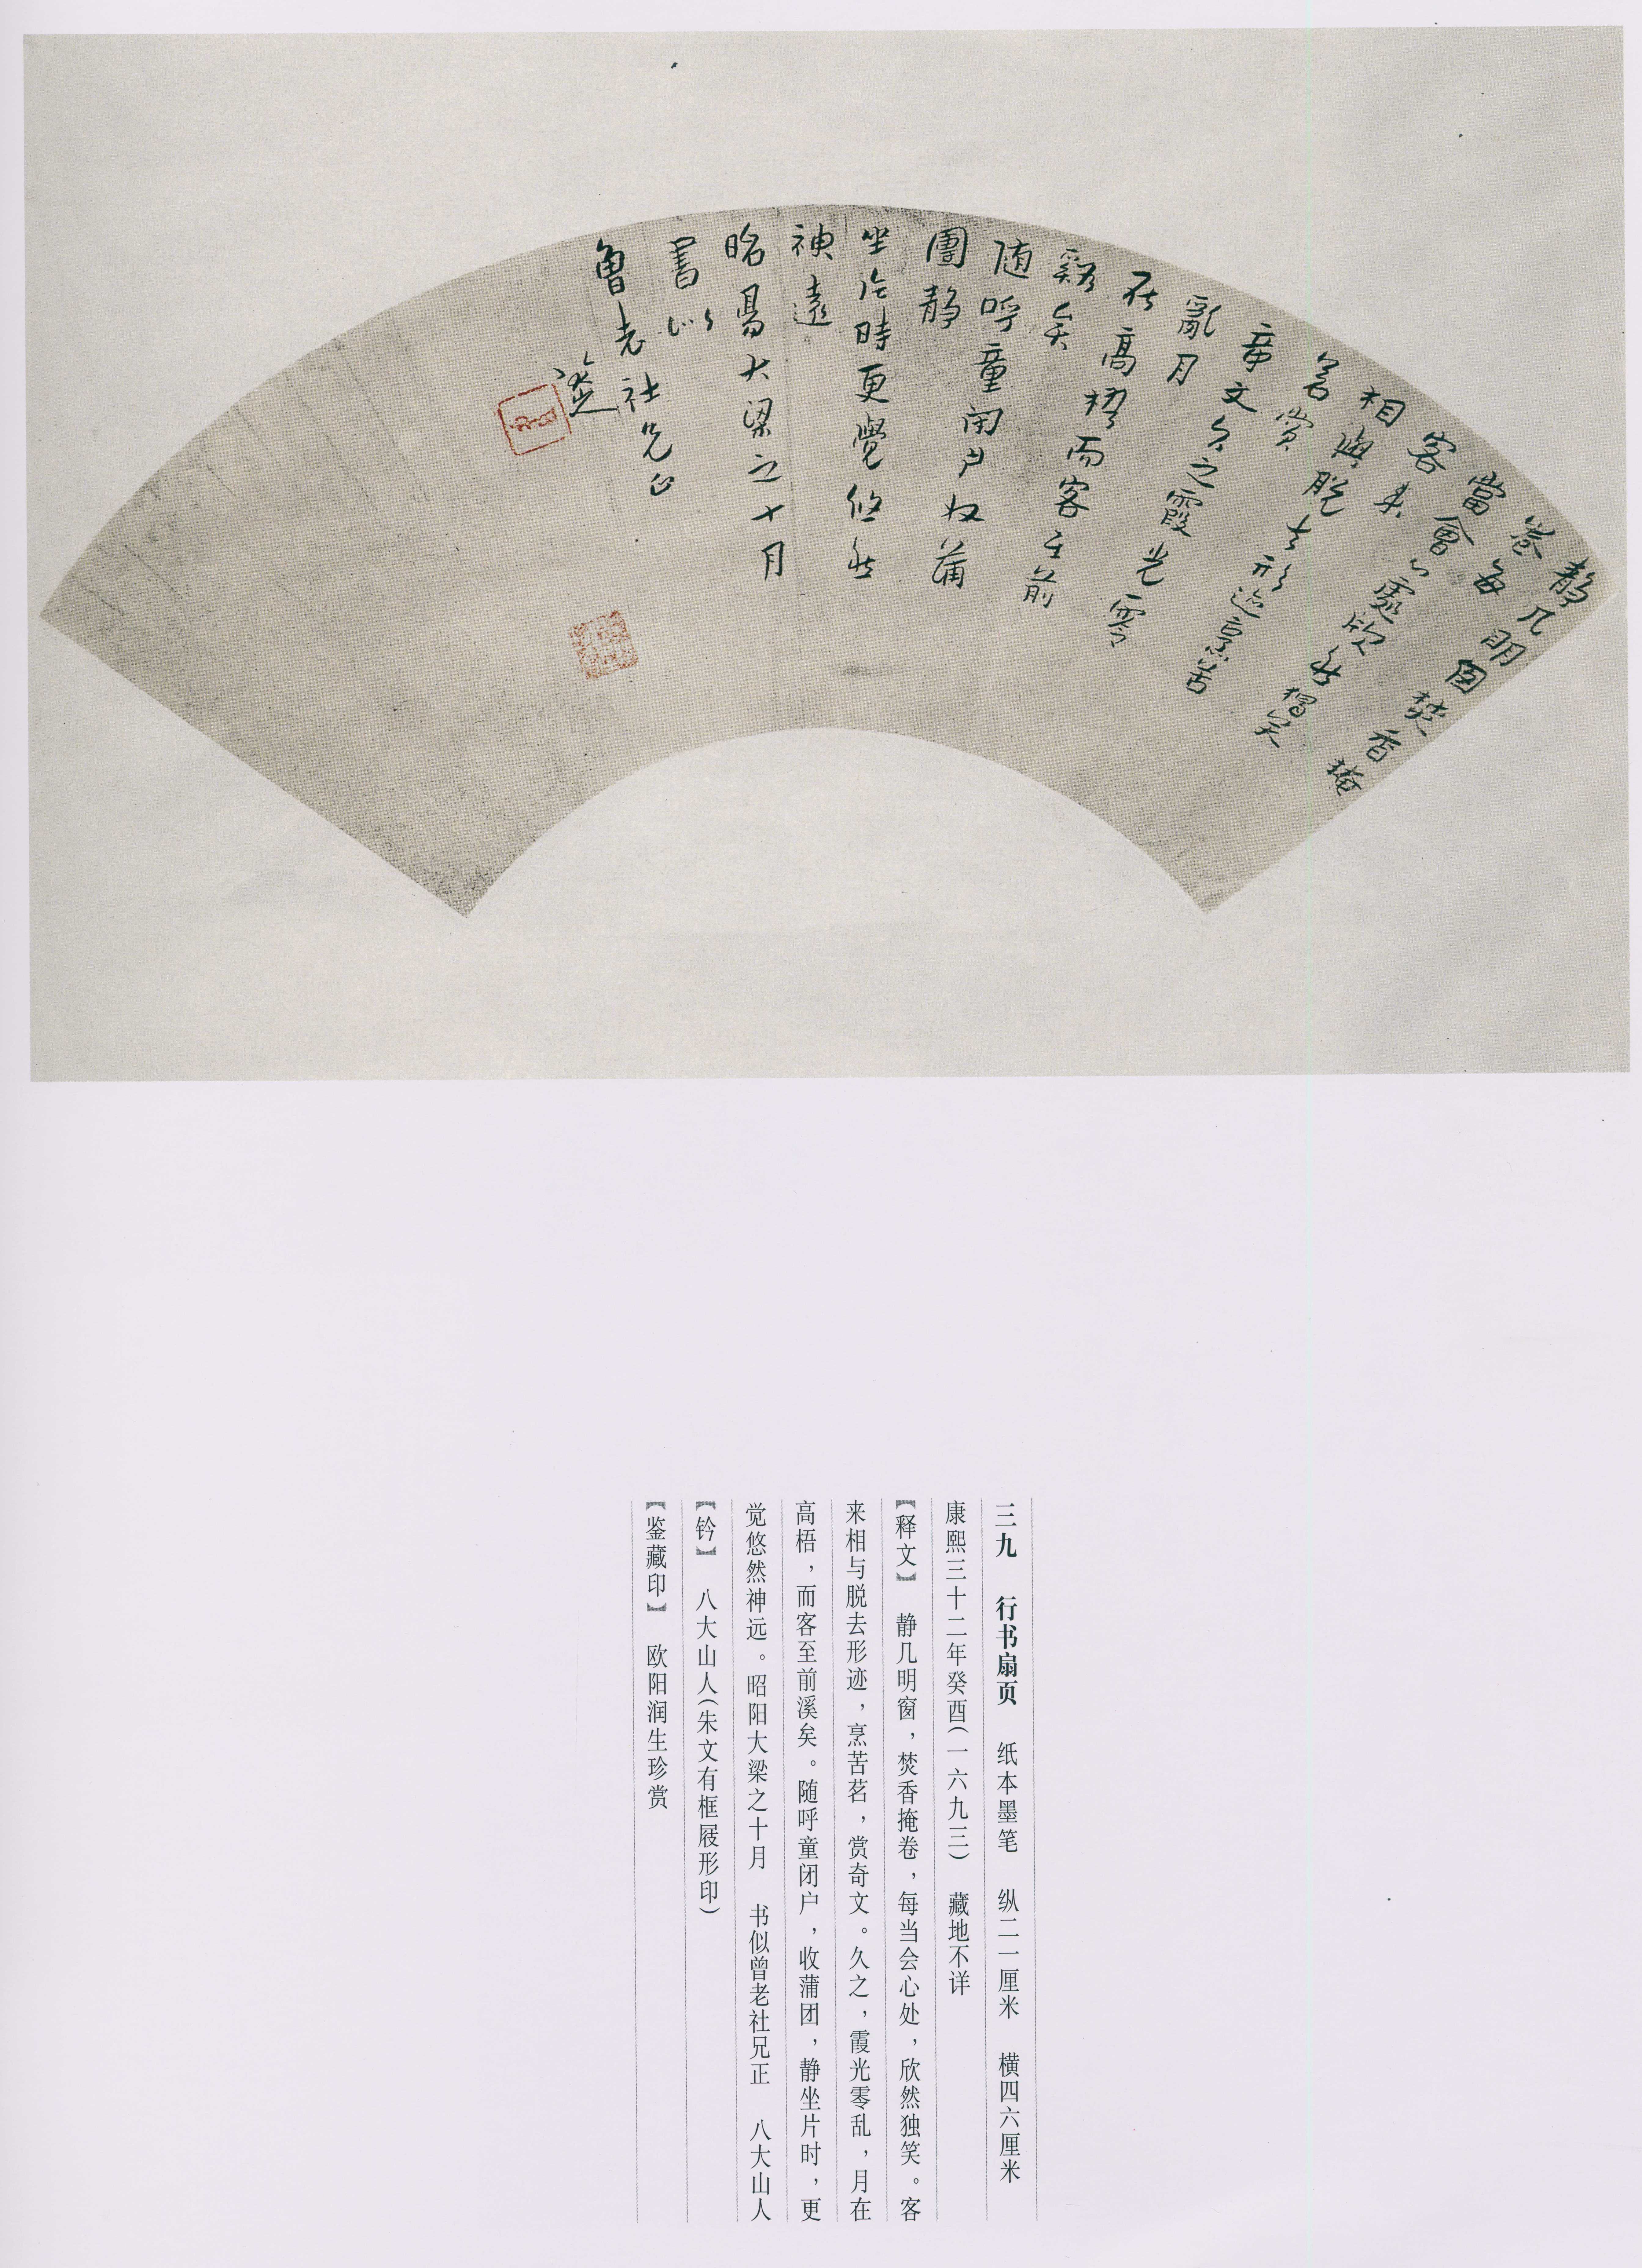 静几明囱焚香掩
卷每
當會心處欣然獨笑
客来
相與脱去形迹烹苦
茗賞
竒文久之霞光零
亂月
在高梧而客至前
谿矣
随呼童闭户收蒲
團静
坐片時更覺悠然
神遠
昭昜大梁之十月
書似
曾老社兄正
八大山人
三九 行书扇页 纸本墨笔 纵二一厘米 横四六厘米
康熙三十二年癸酉(一六九三) 藏地不详
【释文】 静几明窗，焚香掩卷，每当会心处，欣然独笑。客
来相与脱去形迹，烹苦茗，赏奇文。久之，霞光零乱，月在
高梧，而客至前溪矣。随呼童闭户，收蒲团，静坐片时，更
觉悠然神远。昭阳大梁之十月 书似曾老社兄正 八大山人
【钤】 八大山人(朱文有框屐形印)
【鉴藏印】 欧阳润生珍赏